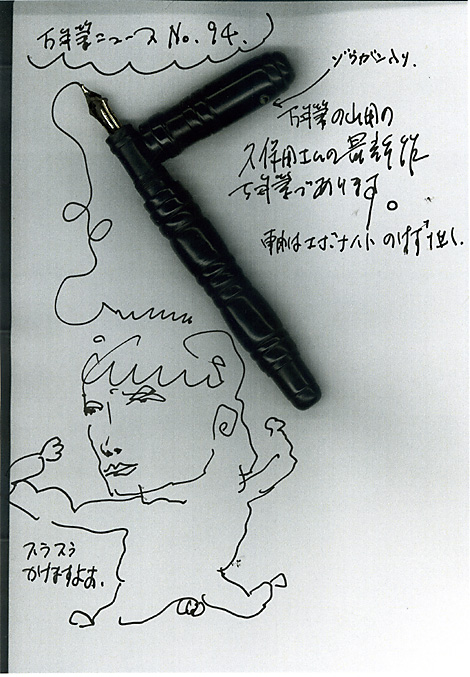 万年筆ニュース No. 94.
ゾウガン入り.
万年筆の山田の
久保田の最新作
万年筆であります。
軸はエボナイトのけずり出し.
スラスラ
かけますよお.